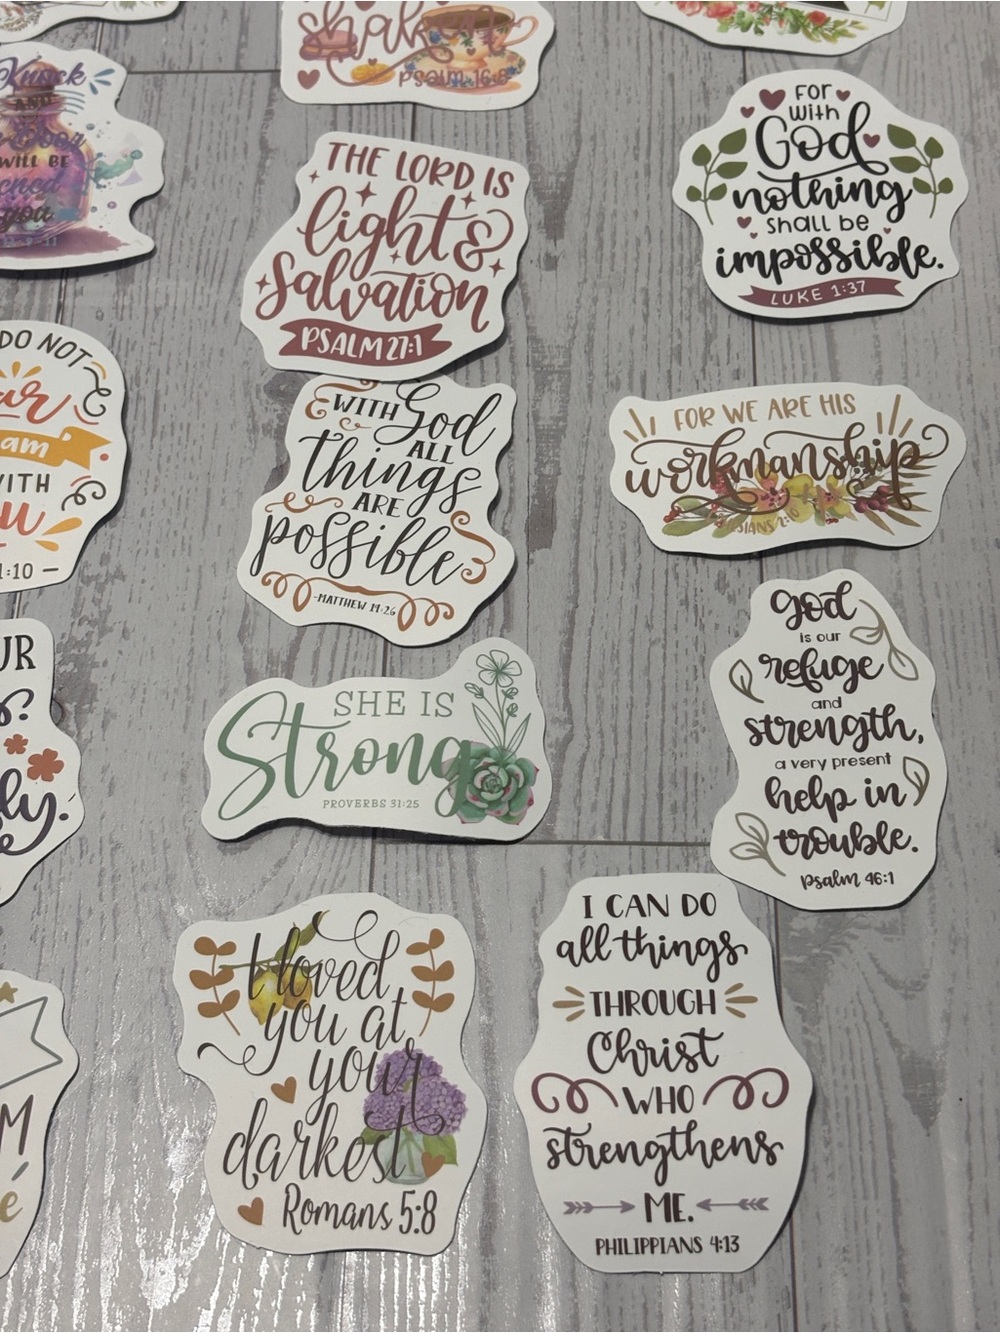 shaken
Psalm 16:8
Knock
AND
Door
WILL BE
you
THE LORD IS
light &
Salvation
PSALM 27:1
FOR
with
God
nothing
shall be
impossible.
LUKE 1:37
DO NOT
am
WITH
1:10
WITH God
ALL
things
ARE
possible
-MATTHEW 19:26
FOR WE ARE HIS
workmanship
SHE IS
Strong
PROVERBS 31:25
god
is our
refuge
and
strength,
a very present
help in
trouble.
Psalm 46:1
I loved
you at
your
darkest
Romans 5:8
I CAN DO
all things
THROUGH
Christ
WHO
strengthens
ME.
PHILIPPIANS 4:13